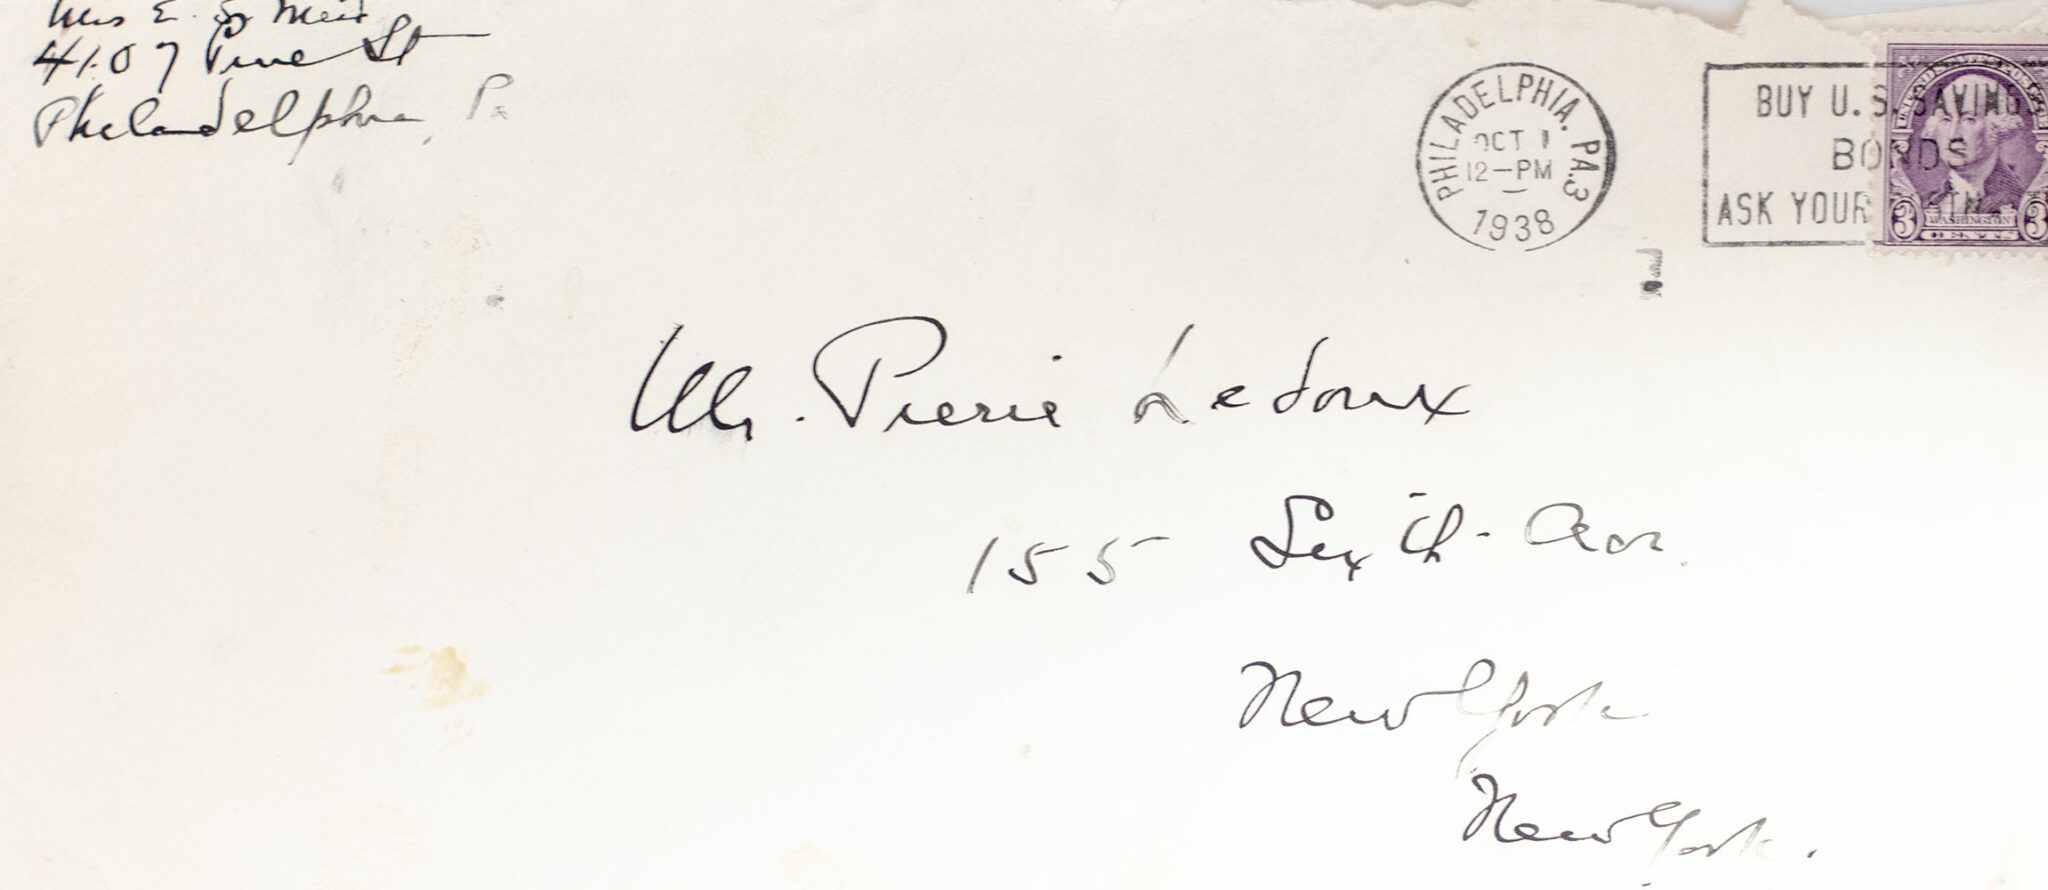 Mrs E. S. Meis
4107 Pine St
Philadelphia, Pa
PHILADELPHIA, PA. 3
OCT 1
12-PM
1938
BUY U.S. SAVINGS
BONDS
ASK YOUR
UNITED STATES POSTAGE
WASHINGTON
3 CENTS 3
Mr. Pierre Ledoux
155 Sixth Ave.
New York
New York.